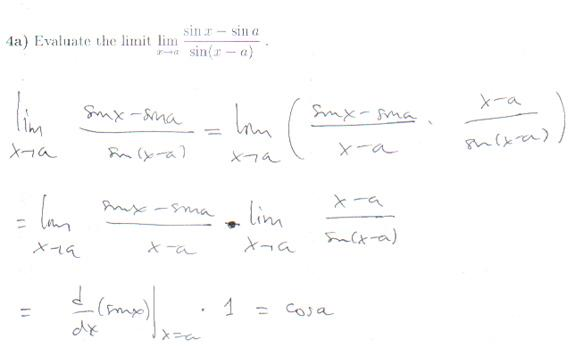 4a) Evaluate the limit lim_{x→a} (sin x − sin a)/(sin(x − a)) .
lim_{x→a} (sin x − sin a)/(sin (x−a)) = lim_{x→a} ( (sin x − sin a)/(x−a) · (x−a)/(sin (x−a)) )
= lim_{x→a} (sin x − sin a)/(x−a) · lim_{x→a} (x−a)/(sin (x−a))
= d/dx (sin x)|_{x=a} · 1 = cos a